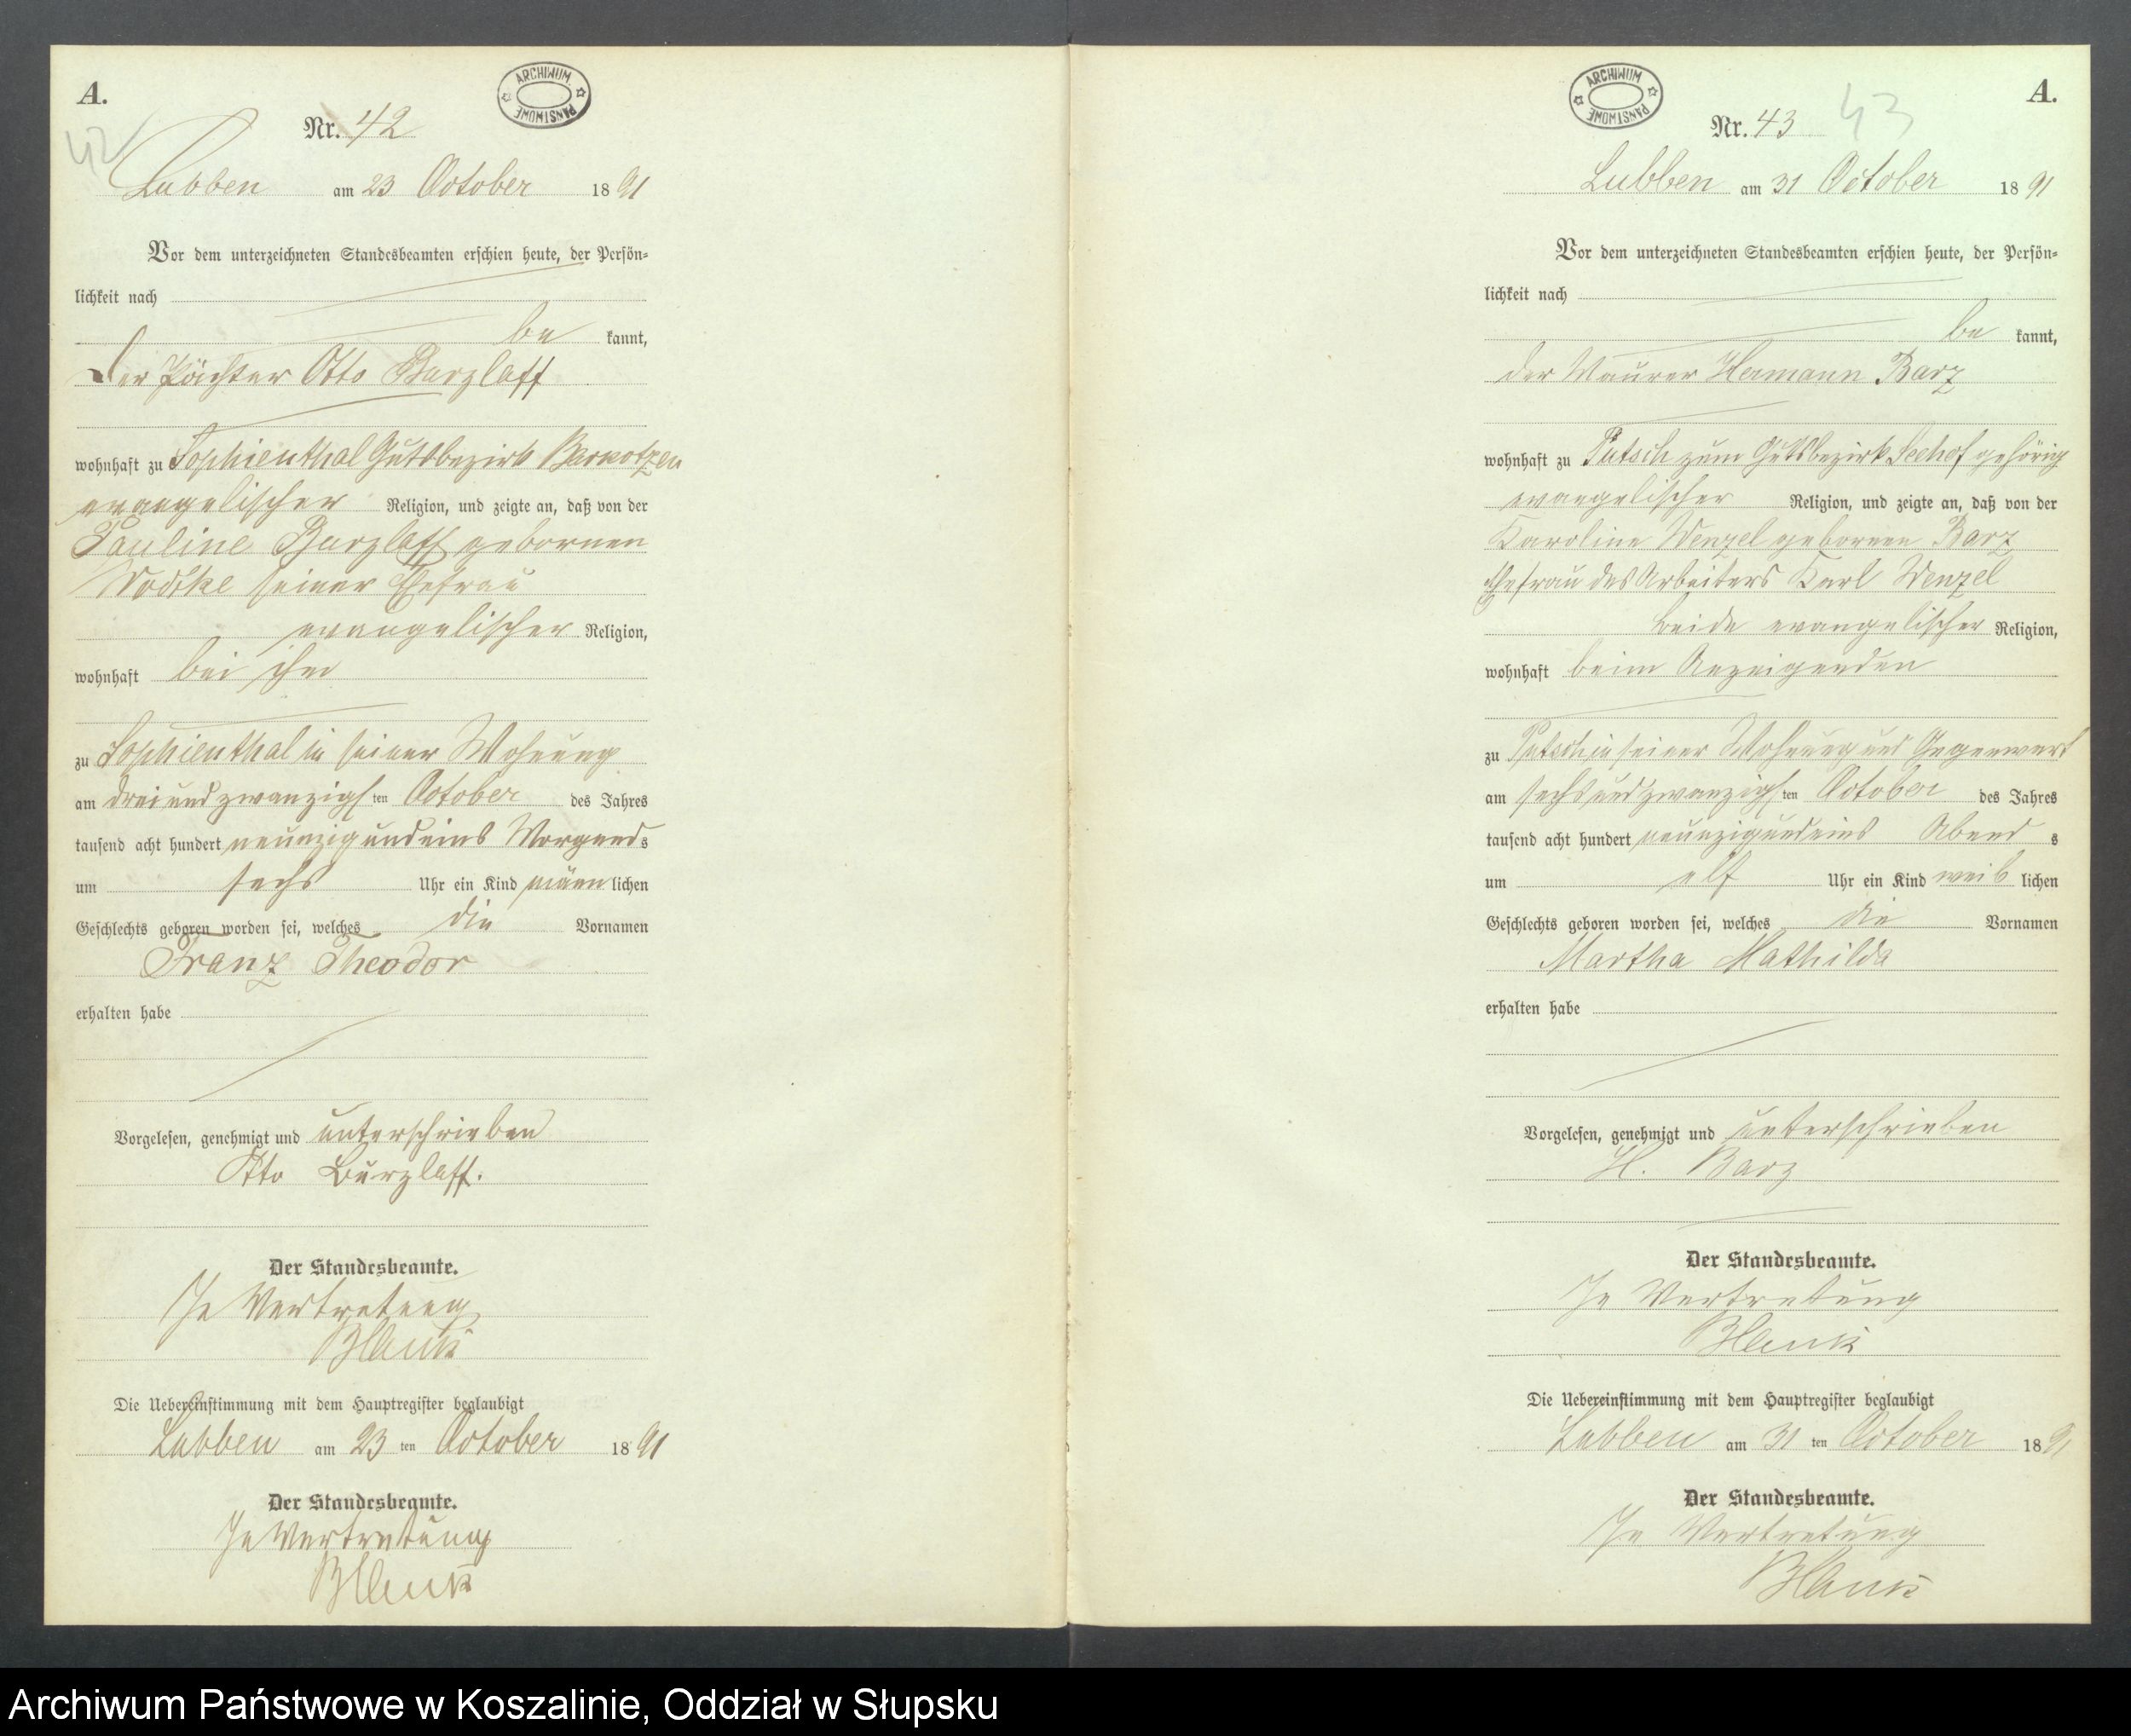 A.
ARCHIWUM PAŃSTWOWE
42
Nr. 42
Lubben am 23 October 1891
Vor dem unterzeichneten Standesbeamten erschien heute, der Persön-
lichkeit nach
be kannt,
Der Pächter Otto Burzlaff
wohnhaft zu Sophienthal Gutsbezirk Barkotzen
evangelischer Religion, und zeigte an, daß von der
Pauline Burzlaff gebornen
Wodtke seiner Ehefrau
evangelischer Religion,
wohnhaft bei ihm
zu Sophienthal in seiner Wohnung
am dreiundzwanzigsten October des Jahres
tausend acht hundert neunzig und eins Morgends
um sechs Uhr ein Kind männlichen
Geschlechts geboren worden sei, welches die Vornamen
Franz Theodor
erhalten habe
Vorgelesen, genehmigt und unterschrieben
Otto Burzlaff.
Der Standesbeamte.
In Vertretung
Blank
Die Uebereinstimmung mit dem Hauptregister beglaubigt
Lubben am 23 ten October 1891
Der Standesbeamte.
In Vertretung
Blank
A.
ARCHIWUM PAŃSTWOWE
Nr. 43 43
Lubben am 31 October 1891
Vor dem unterzeichneten Standesbeamten erschien heute, der Persön-
lichkeit nach
be kannt,
der Maurer Hermann Barz
wohnhaft zu Putsch zum Gutsbezirk Seehof gehörig
evangelischer Religion, und zeigte an, daß von der
Karoline Wenzel gebornen Barz
Ehefrau des Arbeiters Karl Wenzel
beide evangelischer Religion,
wohnhaft beim Anzeigenden
zu Putsch in seiner Wohnung und Gegenwart
am sechsundzwanzigsten October des Jahres
tausend acht hundert neunzig und eins Abends
um elf Uhr ein Kind weiblichen
Geschlechts geboren worden sei, welches die Vornamen
Martha Mathilda
erhalten habe
Vorgelesen, genehmigt und unterschrieben
H. Barz
Der Standesbeamte.
In Vertretung
Blank
Die Uebereinstimmung mit dem Hauptregister beglaubigt
Lubben am 31 ten October 1891
Der Standesbeamte.
In Vertretung
Blank
Archiwum Państwowe w Koszalinie, Oddział w Słupsku